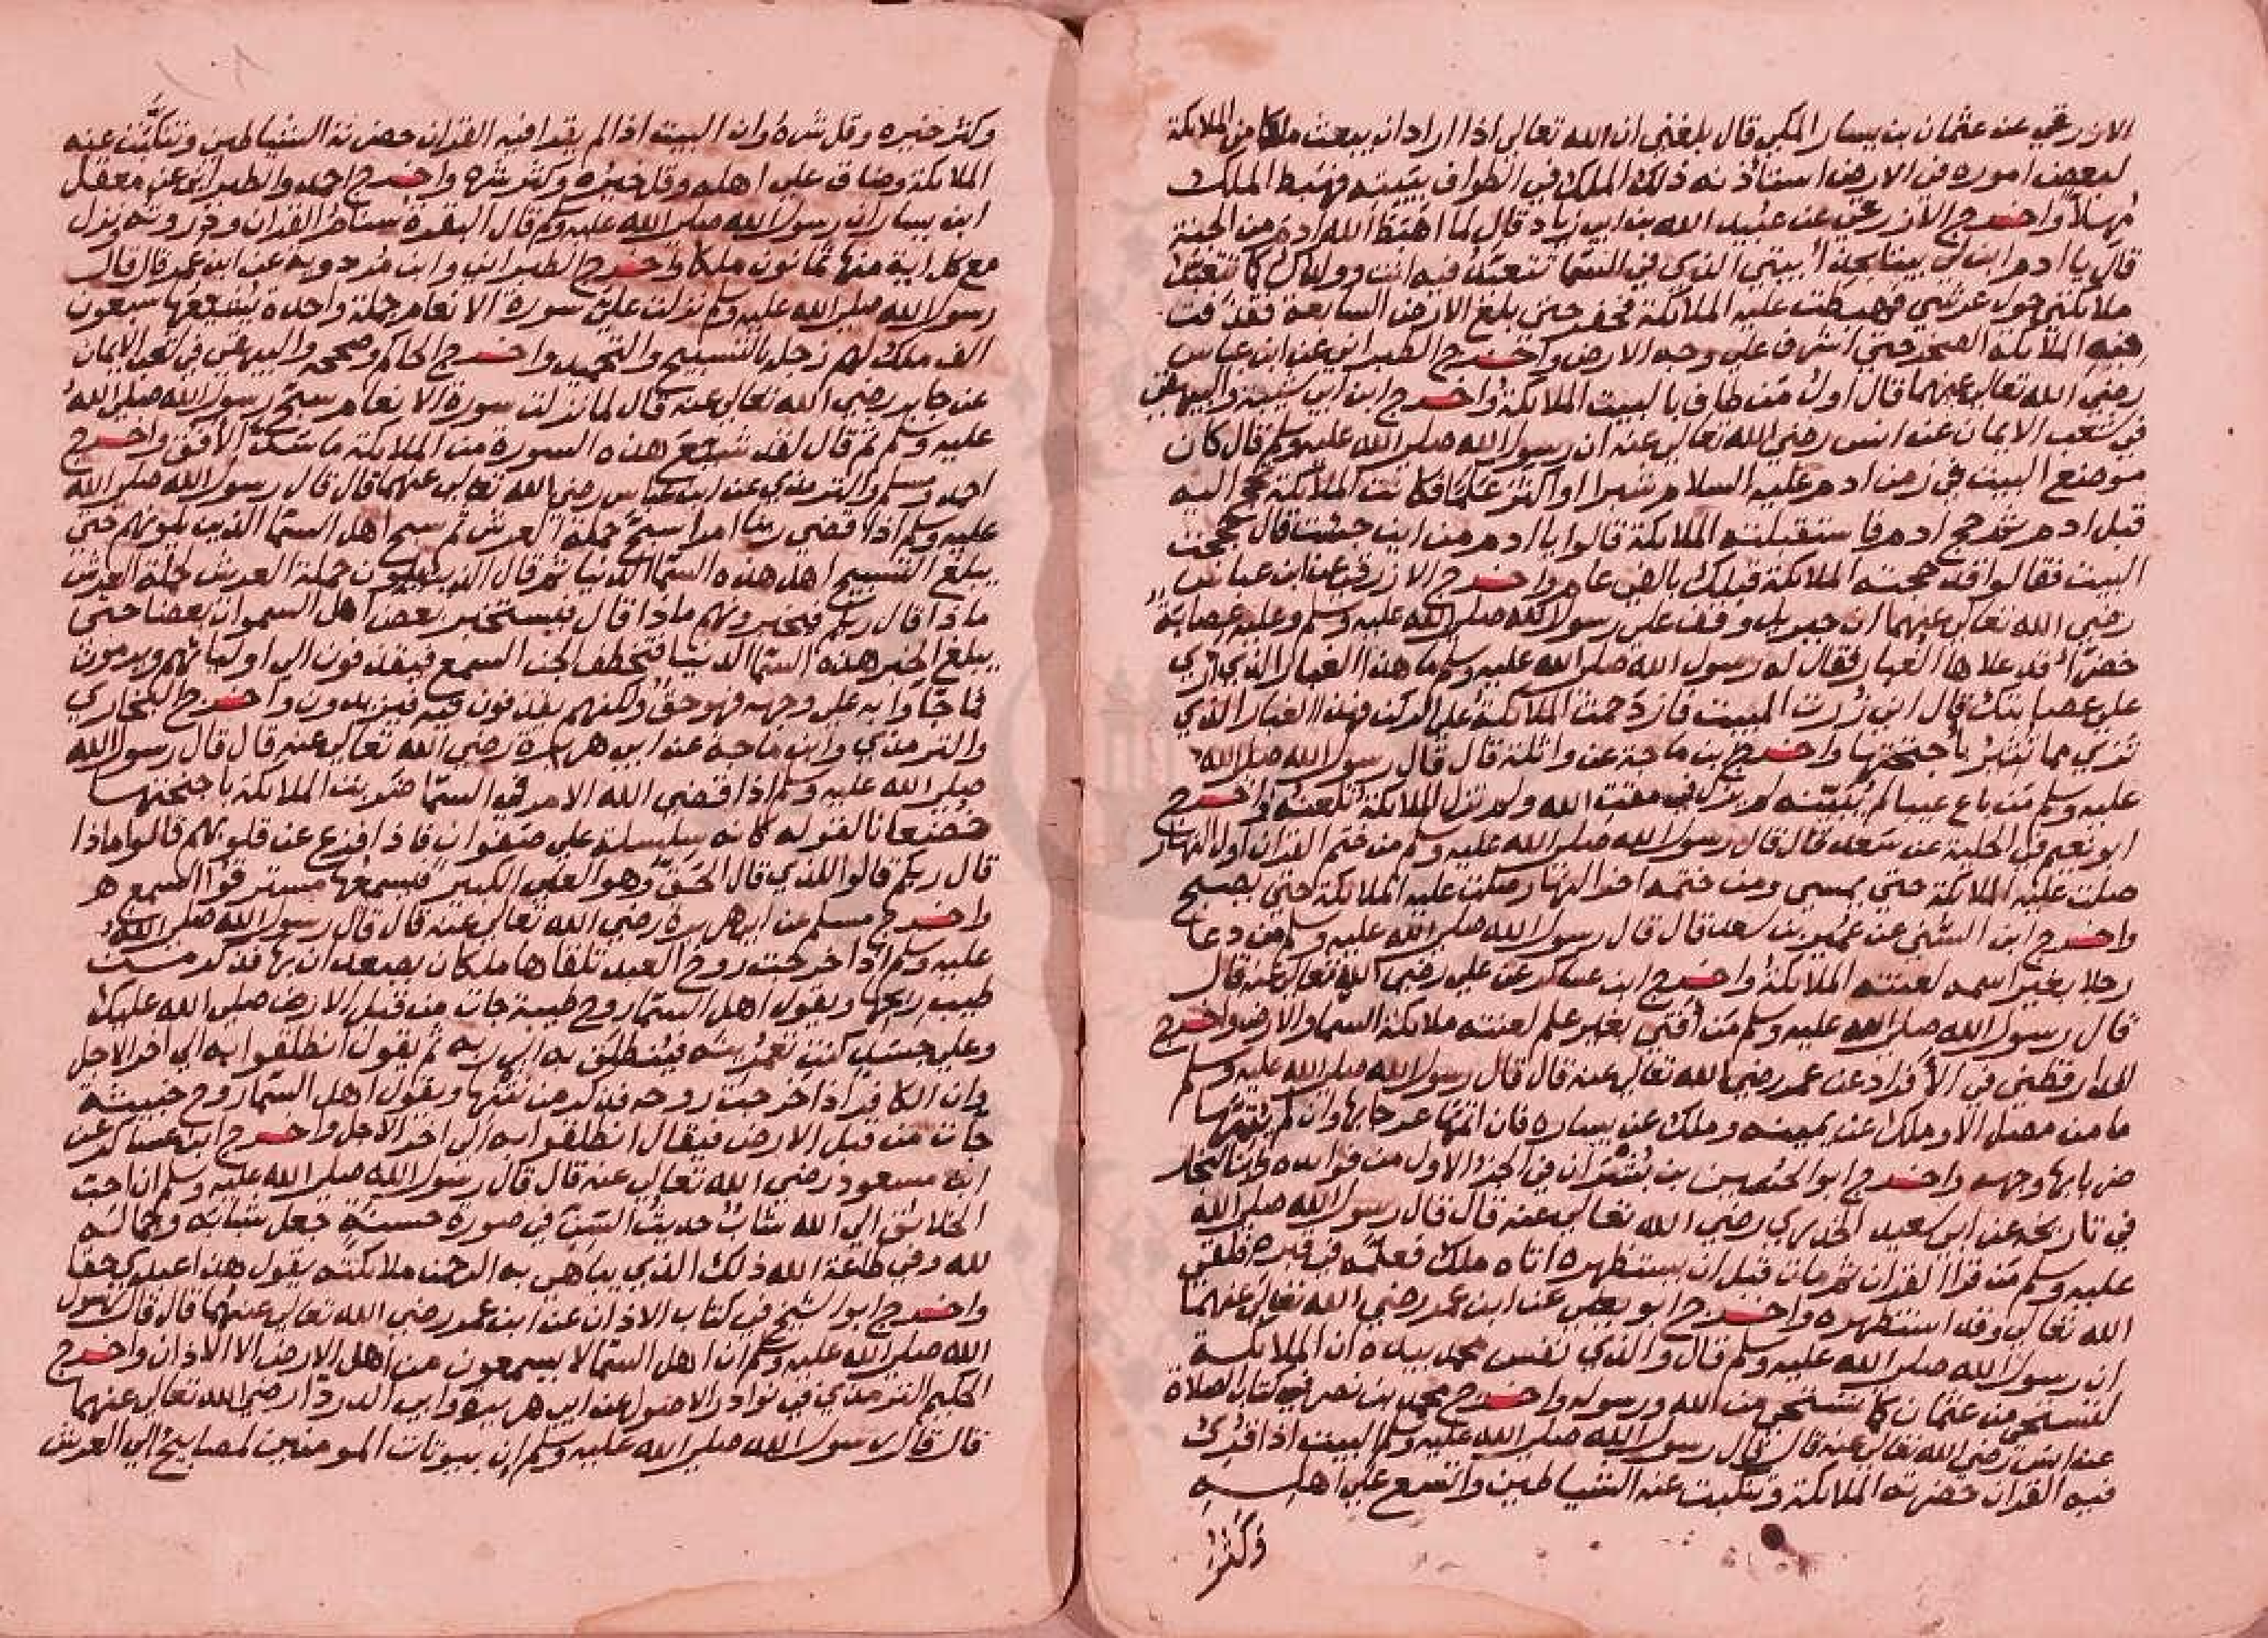 الازرقي عن عثمان بن يسار المكي قال بلغني ان الله تعالى اذا اراد ان يبعث ملكا من الملائكة
لبعض اموره في الارض استاذنه ذلك الملك في الطواف ببيته فهبط الملك
مهلا واخرج الازرقي عن عبيد الله بن ابي زياد قال لما اهبط الله ادم من الجنة
قال يا ادم ابن لي بيتا بحذا بيتي الذي في السما تتعبد فيه انت وولدك كما تتعبد
ملائكتي حول عرشي فهبطت عليه الملائكة فحفر حتى بلغ الارض السابعة فقذفت
فيه الملائكة الصخر حتى اشرف على وجه الارض واخرج الطبراني عن ابن عباس
رضي الله تعالى عنهما قال اول من طاف بالبيت الملائكة واخرج ابن ابي شيبة والبيهقي
في شعب الايمان عن انس رضي الله تعالى عنه ان رسول الله صلى الله عليه وسلم قال كان
موضع البيت في زمن ادم عليه السلام شبرا او اكثر علما فكانت الملائكة تحج اليه
قبل ادم ثم حج ادم فاستقبلته الملائكة قالوا يا ادم من اين جئت قال حججت
البيت فقالوا قد حجته الملائكة قبلك بالفي عام واخرج الازرقي عن ابن عباس
رضي الله تعالى عنهما ان جبريل وقف على رسول الله صلى الله عليه وسلم وعليه عصابة
خضرا قد علاها الغبار فقال له رسول الله صلى الله عليه وسلم ما هذا الغبار الذي ارى
على عصابتك قال اني زرت البيت فازدحمت الملائكة على الركن فهذا الغبار الذي
ترى مما تثير باجنحتها واخرج بن ماجة عن واثلة قال قال رسول الله صلى الله
عليه وسلم من باع عيبا لم يبينه لم يزل في مقت الله ولم تزل الملائكة تلعنه واخرج
ابو نعيم في الحلية عن سعد قال قال رسول الله صلى الله عليه وسلم من ختم القران اول النهار
صلت عليه الملائكة حتى يمسي ومن ختمه اخر النهار صلت عليه الملائكة حتى يصبح
واخرج ابن السني عن عمير بن سعد قال قال رسول الله صلى الله عليه وسلم من دعا
رجلا بغير اسمه لعنته الملائكة واخرج ابن عساكر عن علي رضي الله تعالى عنه قال
قال رسول الله صلى الله عليه وسلم من افتى بغير علم لعنته ملائكة السما والارض واخرج
الدارقطني في الافراد عن عمر رضي الله تعالى عنه قال قال رسول الله صلى الله عليه وسلم
ما من مصل الا وملك عن يمينه وملك عن يساره فان اتمها عرجا بها وان لم يتمها
ضربا بها وجهه واخرج ابو الحسين بن بشران في الجزء الاول من فوائده وابن النجار
في تاريخه عن ابي سعيد الخدري رضي الله تعالى عنه قال قال رسول الله صلى الله
عليه وسلم من قرا القران ثم مات قبل ان يستظهره اتاه ملك فعلمه في قبره فلقي
الله تعالى وقد استظهره واخرج ابو يعلى عن ابن عمر رضي الله تعالى عنهما
ان رسول الله صلى الله عليه وسلم قال والذي نفس محمد بيده ان الملائكة
لتستحي من عثمان كما تستحي من الله ورسوله واخرج محمد بن نصر في كتاب الصلاة
عن انس رضي الله تعالى عنه قال قال رسول الله صلى الله عليه وسلم البيت اذا قرئ
فيه القران حضرته الملائكة وتنكبت عنه الشياطين واتسع على اهله
وكثر
وكثر خيره وقل شره وان البيت اذا لم يقرا فيه القران حضرته الشياطين وتنكبت عنه
الملائكة وضاق على اهله وقل خيره وكثر شره واخرج احمد والطبراني عن معقل
ابن يسار ان رسول الله صلى الله عليه وسلم قال البقرة سنام القران وذروته نزل
مع كل اية منها ثمانون ملكا واخرج الطبراني وابن مردويه عن ابن عمر قال قال
رسول الله صلى الله عليه وسلم نزلت علي سورة الانعام جملة واحدة يشيعها سبعون
الف ملك لهم زجل بالتسبيح والتحميد واخرج الحاكم وصححه والبيهقي في شعب الايمان
عن جابر رضي الله تعالى عنه قال لما نزلت سورة الانعام سبح رسول الله صلى الله
عليه وسلم ثم قال لقد شيع هذه السورة من الملائكة ما سد الافق واخرج
احمد ومسلم والترمذي عن ابن عباس رضي الله تعالى عنهما قال قال رسول الله صلى الله
عليه وسلم اذا قضى ربنا امرا سبح حملة العرش ثم سبح اهل السما الذين يلونهم حتى
يبلغ التسبيح اهل هذه السما الدنيا ثم قال الذين يلون حملة العرش لحملة العرش
ماذا قال ربكم فيخبرونهم ماذا قال فيستخبر بعض اهل السموات بعضا حتى
يبلغ الخبر هذه السما الدنيا فتخطف الجن السمع فيقذفون الى اوليائهم ويرمون
فما جاوا به على وجهه فهو حق ولكنهم يقذفون فيه فيزيدون واخرج البخاري
والترمذي وابن ماجة عن ابي هريرة رضي الله تعالى عنه قال قال رسول الله
صلى الله عليه وسلم اذا قضى الله الامر في السما ضربت الملائكة باجنحتها
خضعانا لقوله كانه سلسلة على صفوان فاذا فزع عن قلوبهم قالوا ماذا
قال ربكم قالوا للذي قال الحق وهو العلي الكبير فيسمعها مسترقوا السمع
واخرج مسلم عن ابي هريرة رضي الله تعالى عنه قال قال رسول الله صلى الله
عليه وسلم اذا خرجت روح العبد تلقاها ملكان يصعدان بها فذكر من
طيب ريحها ويقول اهل السما روح طيبة جات من قبل الارض صلى الله عليك
وعلى جسد كنت تعمرينه فينطلق به الى ربه ثم يقول انطلقوا به الى اخر الاجل
وان الكافر اذا خرجت روحه فذكر من نتنها ويقول اهل السما روح خبيثة
جات من قبل الارض فيقال انطلقوا به الى اخر الاجل واخرج ابن عساكر عن
ابن مسعود رضي الله تعالى عنه قال قال رسول الله صلى الله عليه وسلم ان احب
الخلائق الى الله شاب حديث السن في صورة حسنة جعل شبابه وجماله
لله وفي طاعة الله ذلك الذي يباهي به الرحمن ملائكته يقول هذا عبدي حقا
واخرج ابو الشيخ في كتاب الاذان عن ابن عمر رضي الله تعالى عنهما قال قال رسول
الله صلى الله عليه وسلم ان اهل السما لا يسمعون من اهل الارض الا الاذان واخرج
الحكيم الترمذي في نوادر الاصول عن ابي هريرة وابي الدردا رضي الله تعالى عنهما
قال قال رسول الله صلى الله عليه وسلم ان بيوتات المومنين لمصابيح الى العرش